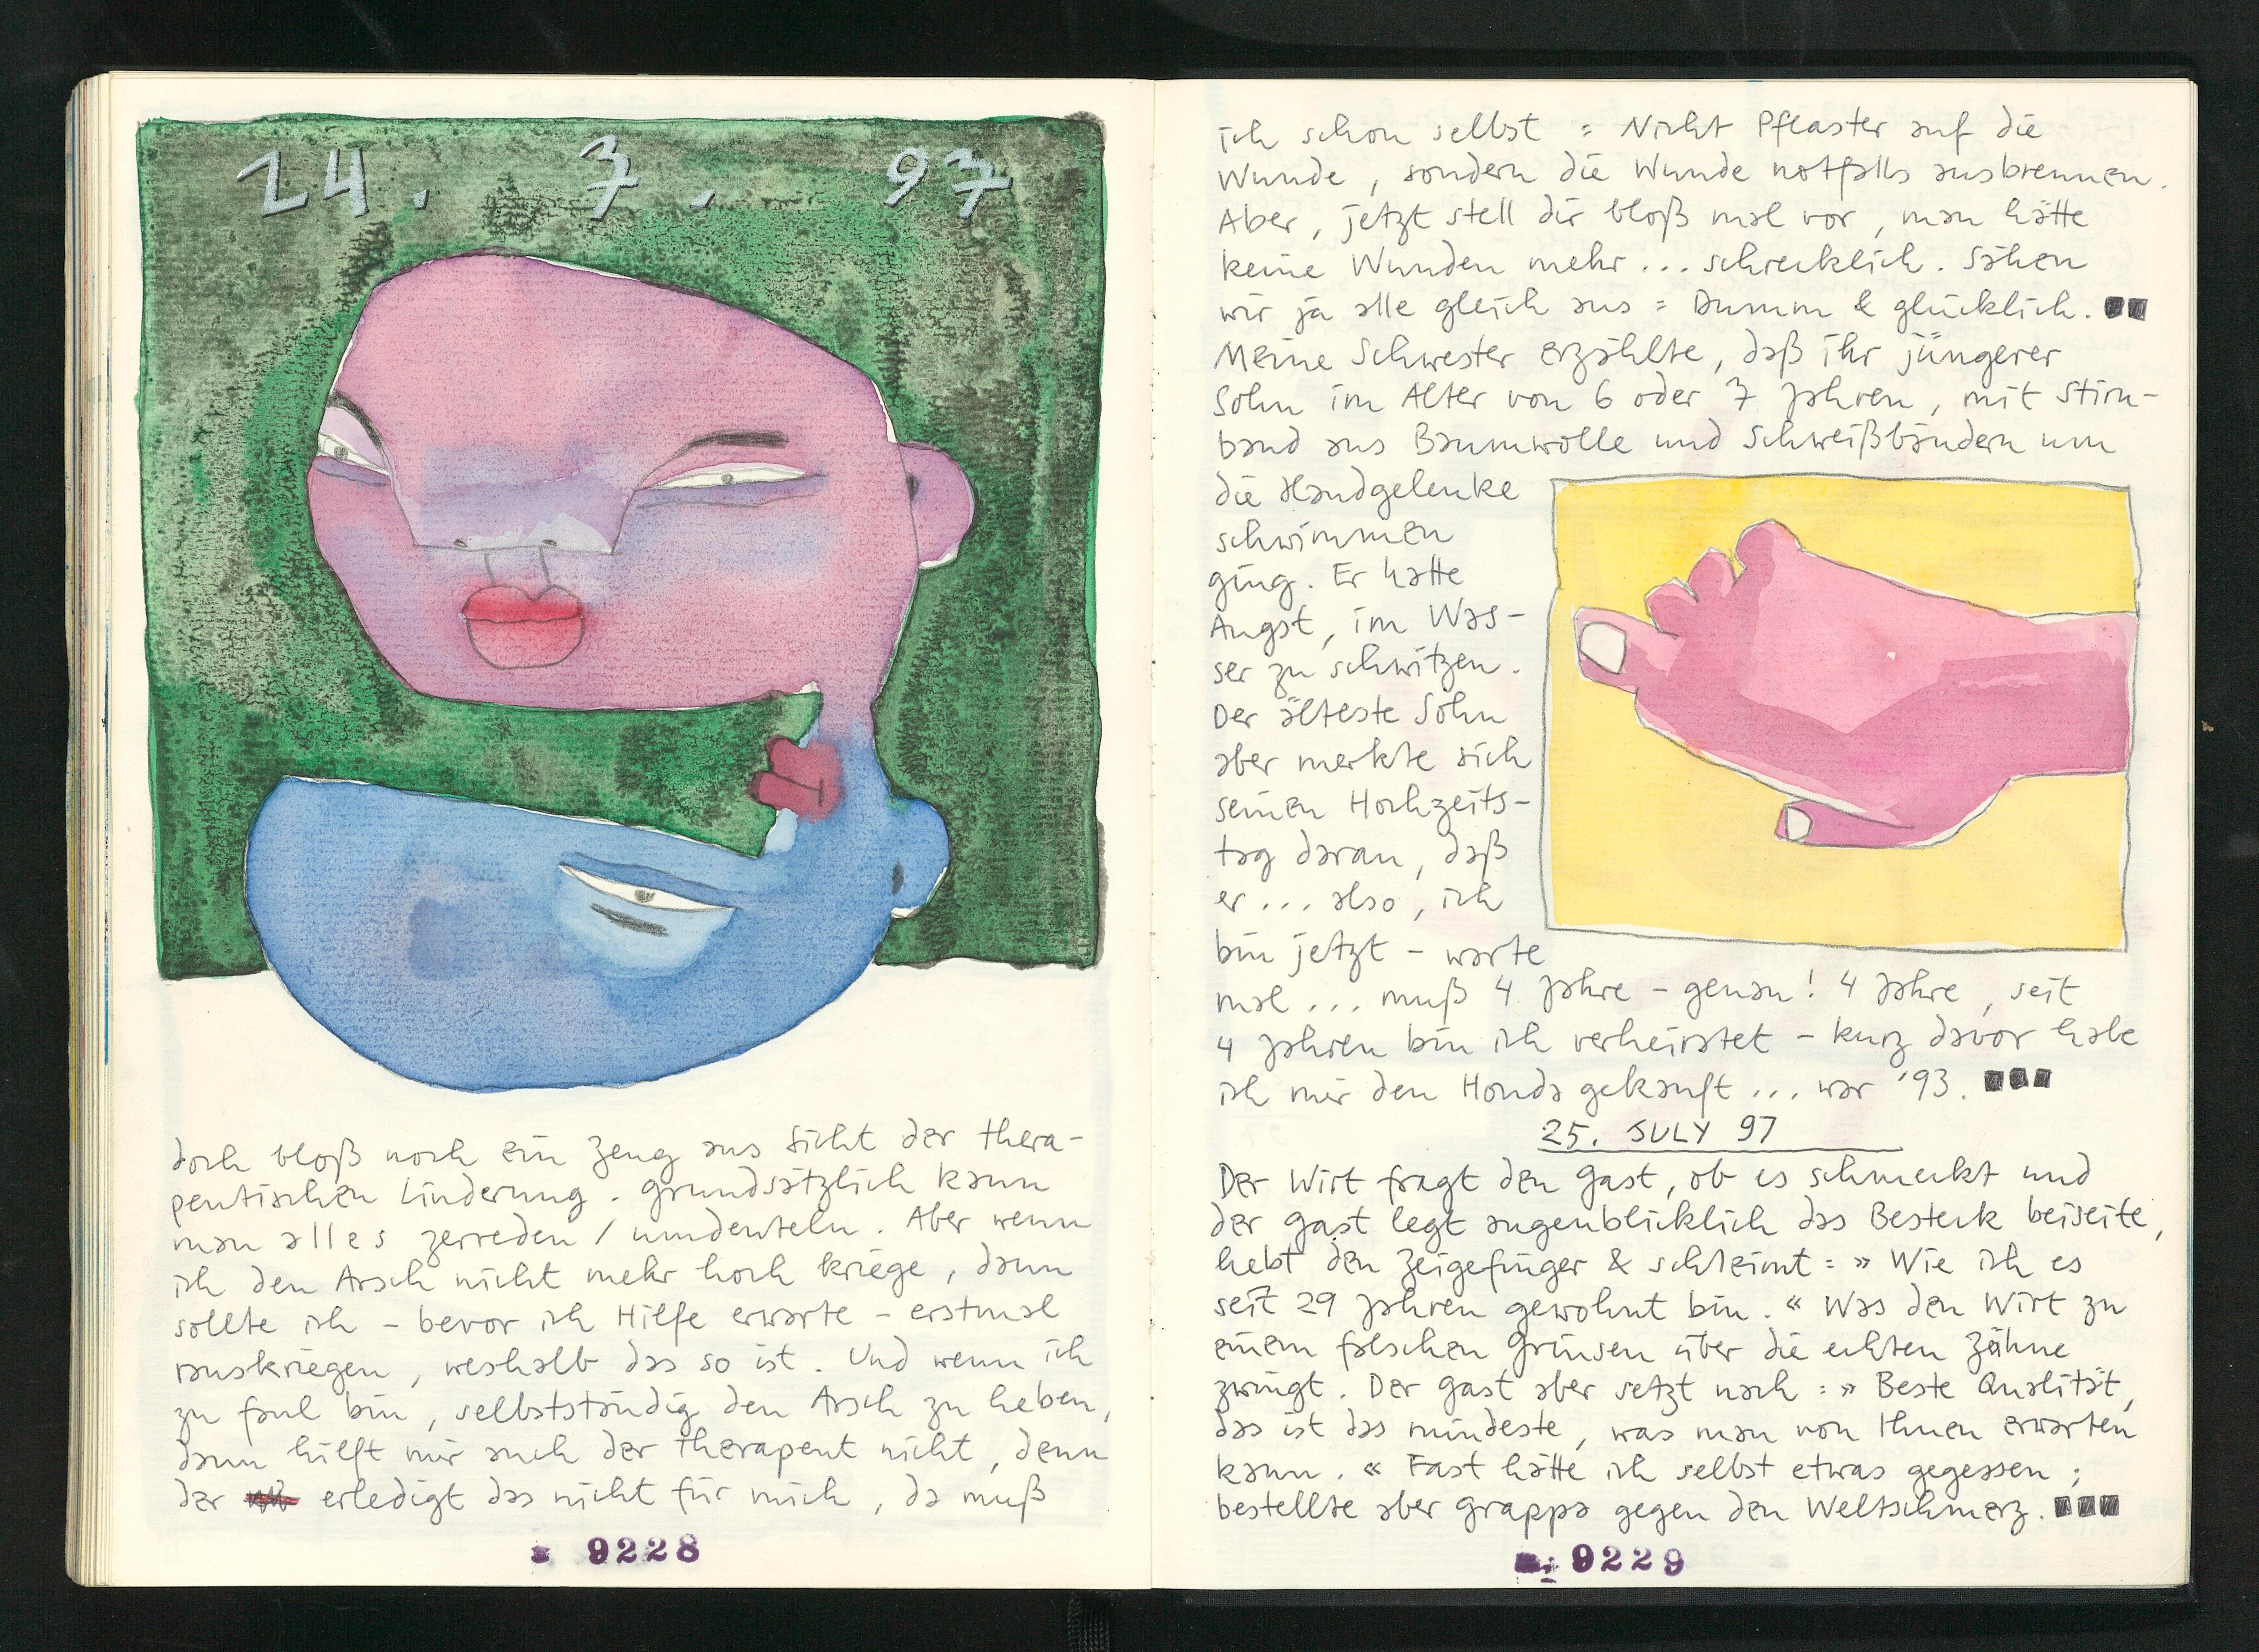 24. 7. 97
doch bloß noch ein Zeug aus Sicht der thera-
peutischen Linderung. Grundsätzlich kann
man alles zerreden / umdeuteln. Aber wenn
ich den Arsch nicht mehr hoch kriege, dann
sollte ich – bevor ich Hilfe erwarte – erstmal
rauskriegen, weshalb das so ist. Und wenn ich
zu faul bin, selbstständig den Arsch zu heben,
dann hilft mir auch der Therapeut nicht, denn
der erledigt das nicht für mich, da muß
9228
ich schon selbst : Nicht Pflaster auf die
Wunde, sondern die Wunde notfalls ausbrennen.
Aber, jetzt stell dir bloß mal vor, man hätte
keine Wunden mehr ... schrecklich. Sähen
wir ja alle gleich aus : Dumm & glücklich. ■■
Meine Schwester erzählte, daß ihr jüngerer
Sohn im Alter von 6 oder 7 Jahren, mit Stirn-
band aus Baumwolle und Schweißbändern um
die Handgelenke
schwimmen
ging. Er hatte
Angst, im Was-
ser zu schwitzen.
Der älteste Sohn
aber merkte sich
seinen Hochzeits-
tag daran, daß
er ... also, ich
bin jetzt – warte
mal ... muß 4 Jahre – genau! 4 Jahre, seit
4 Jahren bin ich verheiratet – kurz davor habe
ich mir den Honda gekauft ... war '93. ■■■
25. JULY 97
Der Wirt fragt den Gast, ob es schmeckt und
der Gast legt augenblicklich das Besteck beiseite,
hebt den Zeigefinger & schleimt : » Wie ich es
seit 29 Jahren gewohnt bin. « Was den Wirt zu
einem falschen Grinsen über die echten Zähne
zwingt. Der Gast aber setzt nach : » Beste Qualität,
das ist das mindeste, was man von Ihnen erwarten
kann. « Fast hätte ich selbst etwas gegessen ;
bestellte aber Grappa gegen den Weltschmerz. ■■■
9229